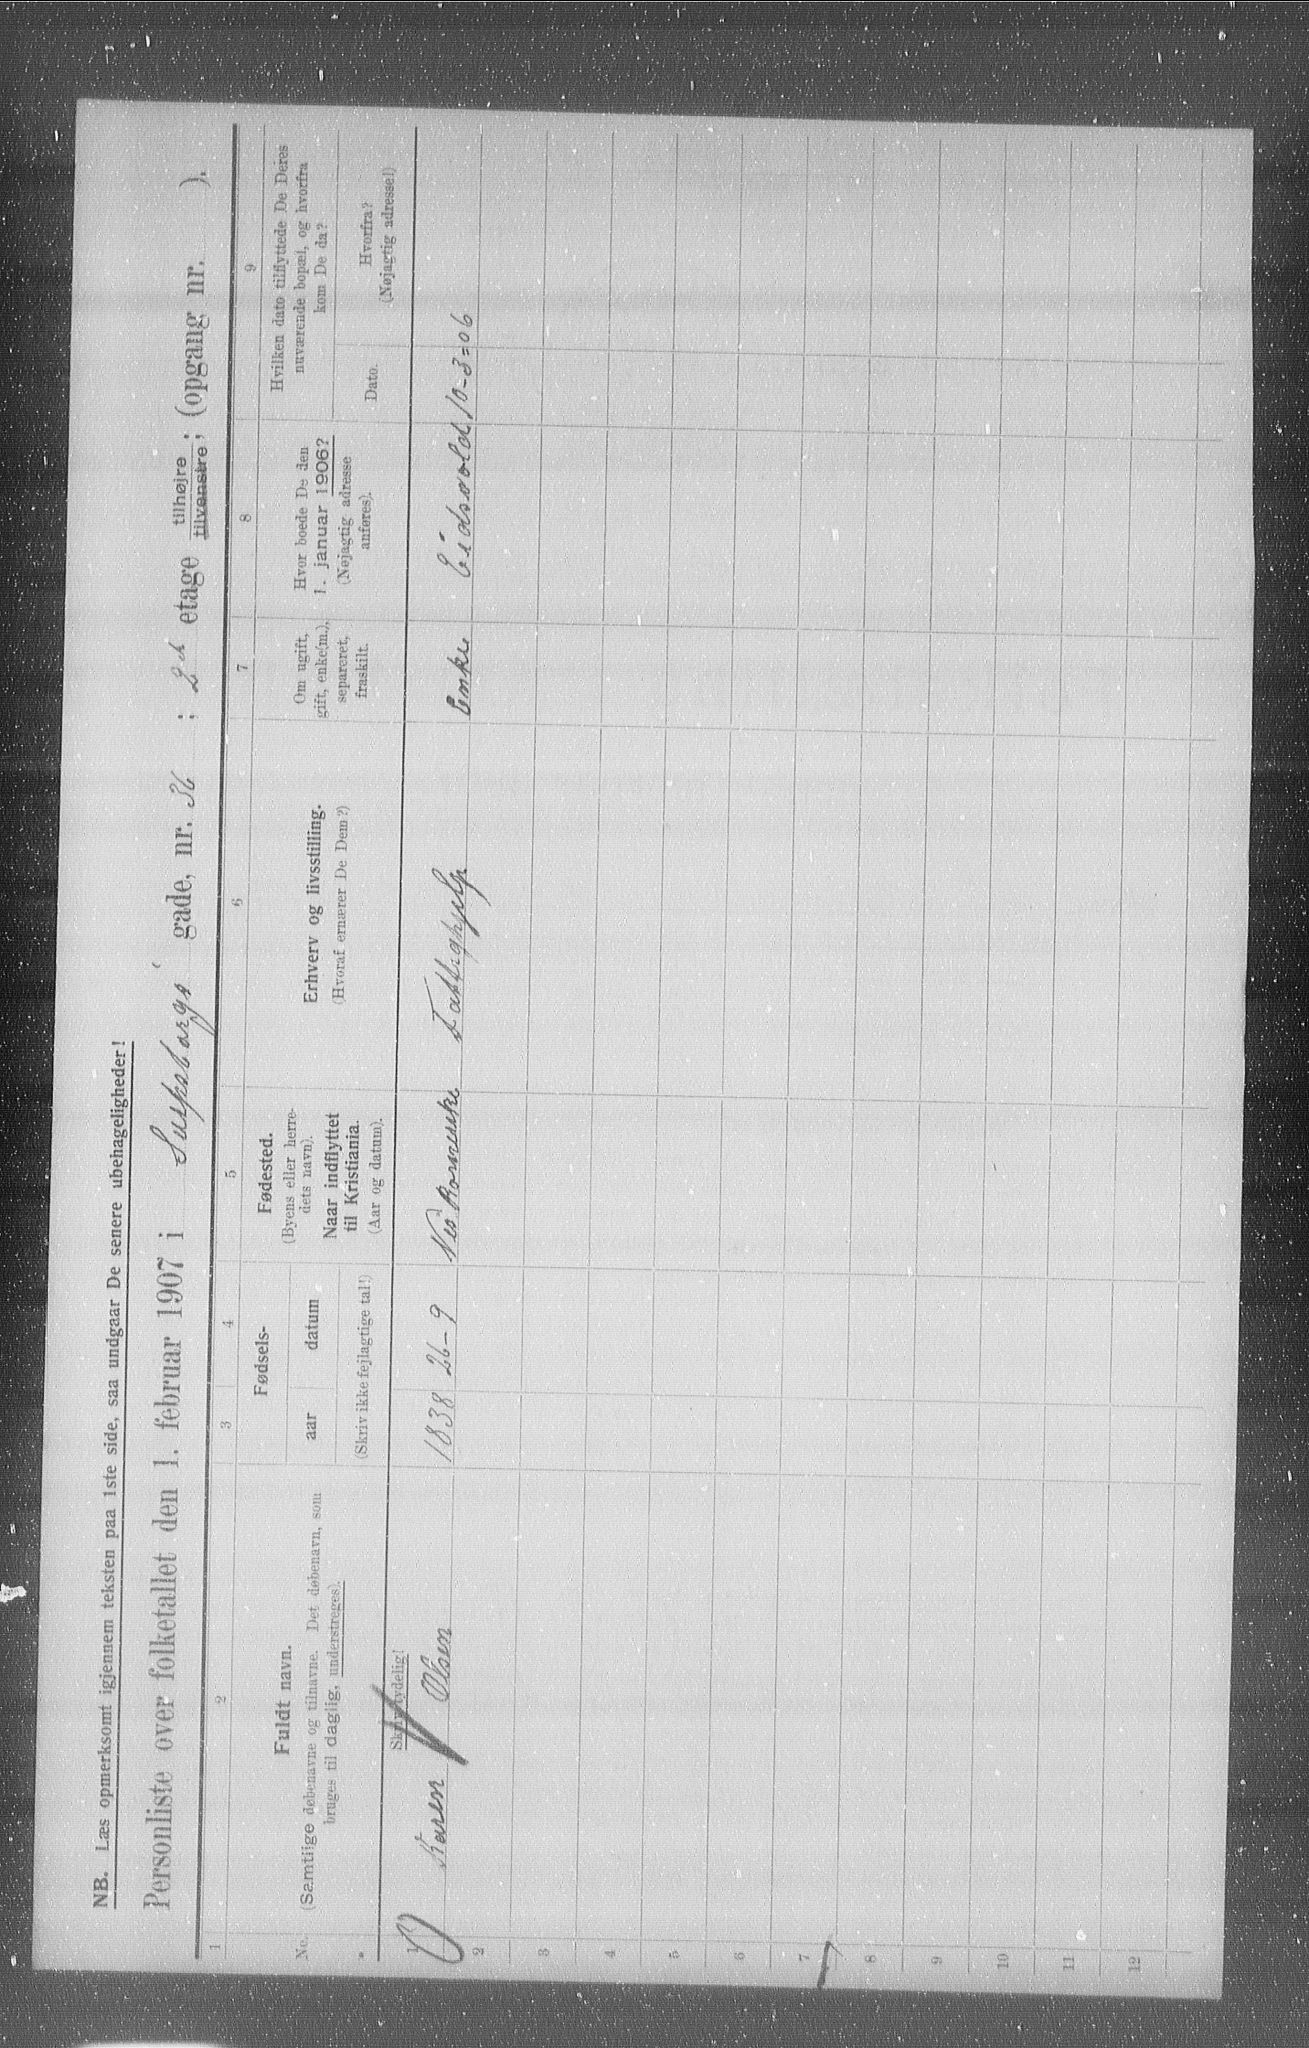 NB. Læs opmerksomt igjennem teksten paa 1ste side, saa undgaar De senere ubehageligheder!
Personliste over folketallet den 1. februar 1907 i Sarpsborgs gade, nr. 36 ; 2den etage tilhøjre tilvenstre; (opgang nr. ).
1 2 3 4 5 6 7 8 9
No.
Fuldt navn.
(Samtlige døbenavne og tilnavne. Det døbenavn, som
bruges til daglig, understreges).
Skriv tydelig!
Fødsels-
aar datum
(Skriv ikke fejlagtige tal!)
Fødested.
(Byens eller herre-
dets navn).
Naar indflyttet
til Kristiania.
(Aar og datum).
Erhverv og livsstilling.
(Hvoraf ernærer De Dem?)
Om ugift,
gift, enke(m.),
separeret,
fraskilt.
Hvor boede De den
1. januar 1906?
(Nøjagtig adresse
anføres).
Hvilken dato tilflyttede De Deres
nuværende bopæl, og hvorfra
kom De da?
Dato.
Hvorfra?
(Nøjagtig adresse!)
1 Karen Olsen 1838 26-9 Nes Romerike Fattighjelp Enke Eidsvold 10-3=06
2
3
4
5
6
7
8
9
10
11
12